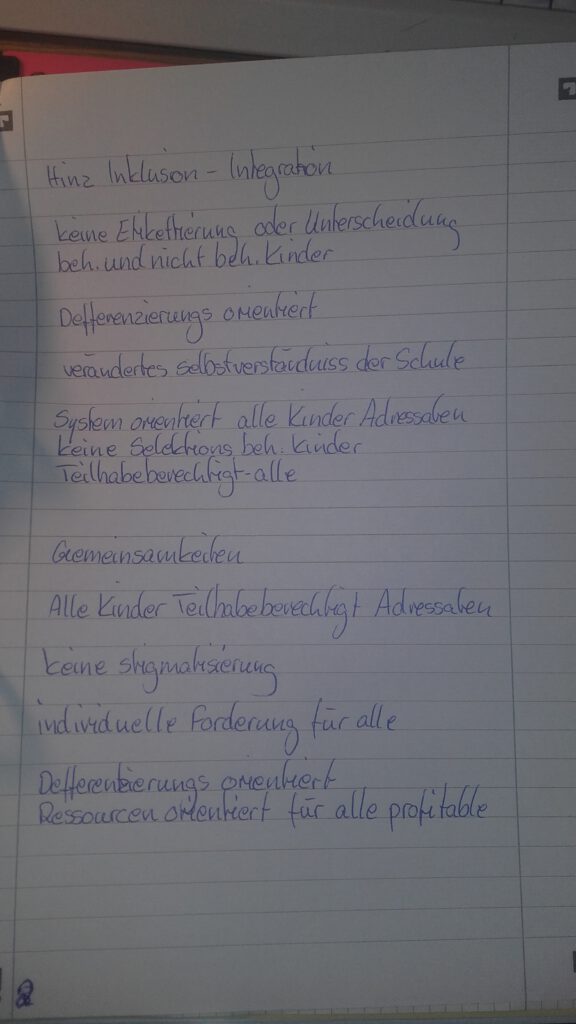 Hinz Inklusion - Integration
keine Etikettierung oder Unterscheidung
beh. und nicht beh. Kinder
Defferenzierungs orientiert
verändertes selbstverständniss der Schule
System orientiert alle Kinder Adressaben
keine Selektions beh. Kinder
Teilhabeberechtigt-alle
Gemeinsamkeiten
Alle Kinder Teilhabeberechtigt Adressaben
keine stigmatisierung
individuelle Forderung für alle
Defferenzierungs orientiert
Ressourcen orientiert für alle profitable
2